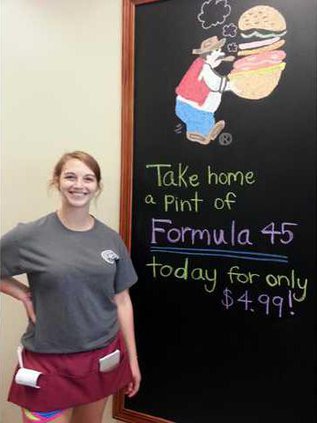 ®
Take home
a Pint of
Formula 45
today for only
$4.99!